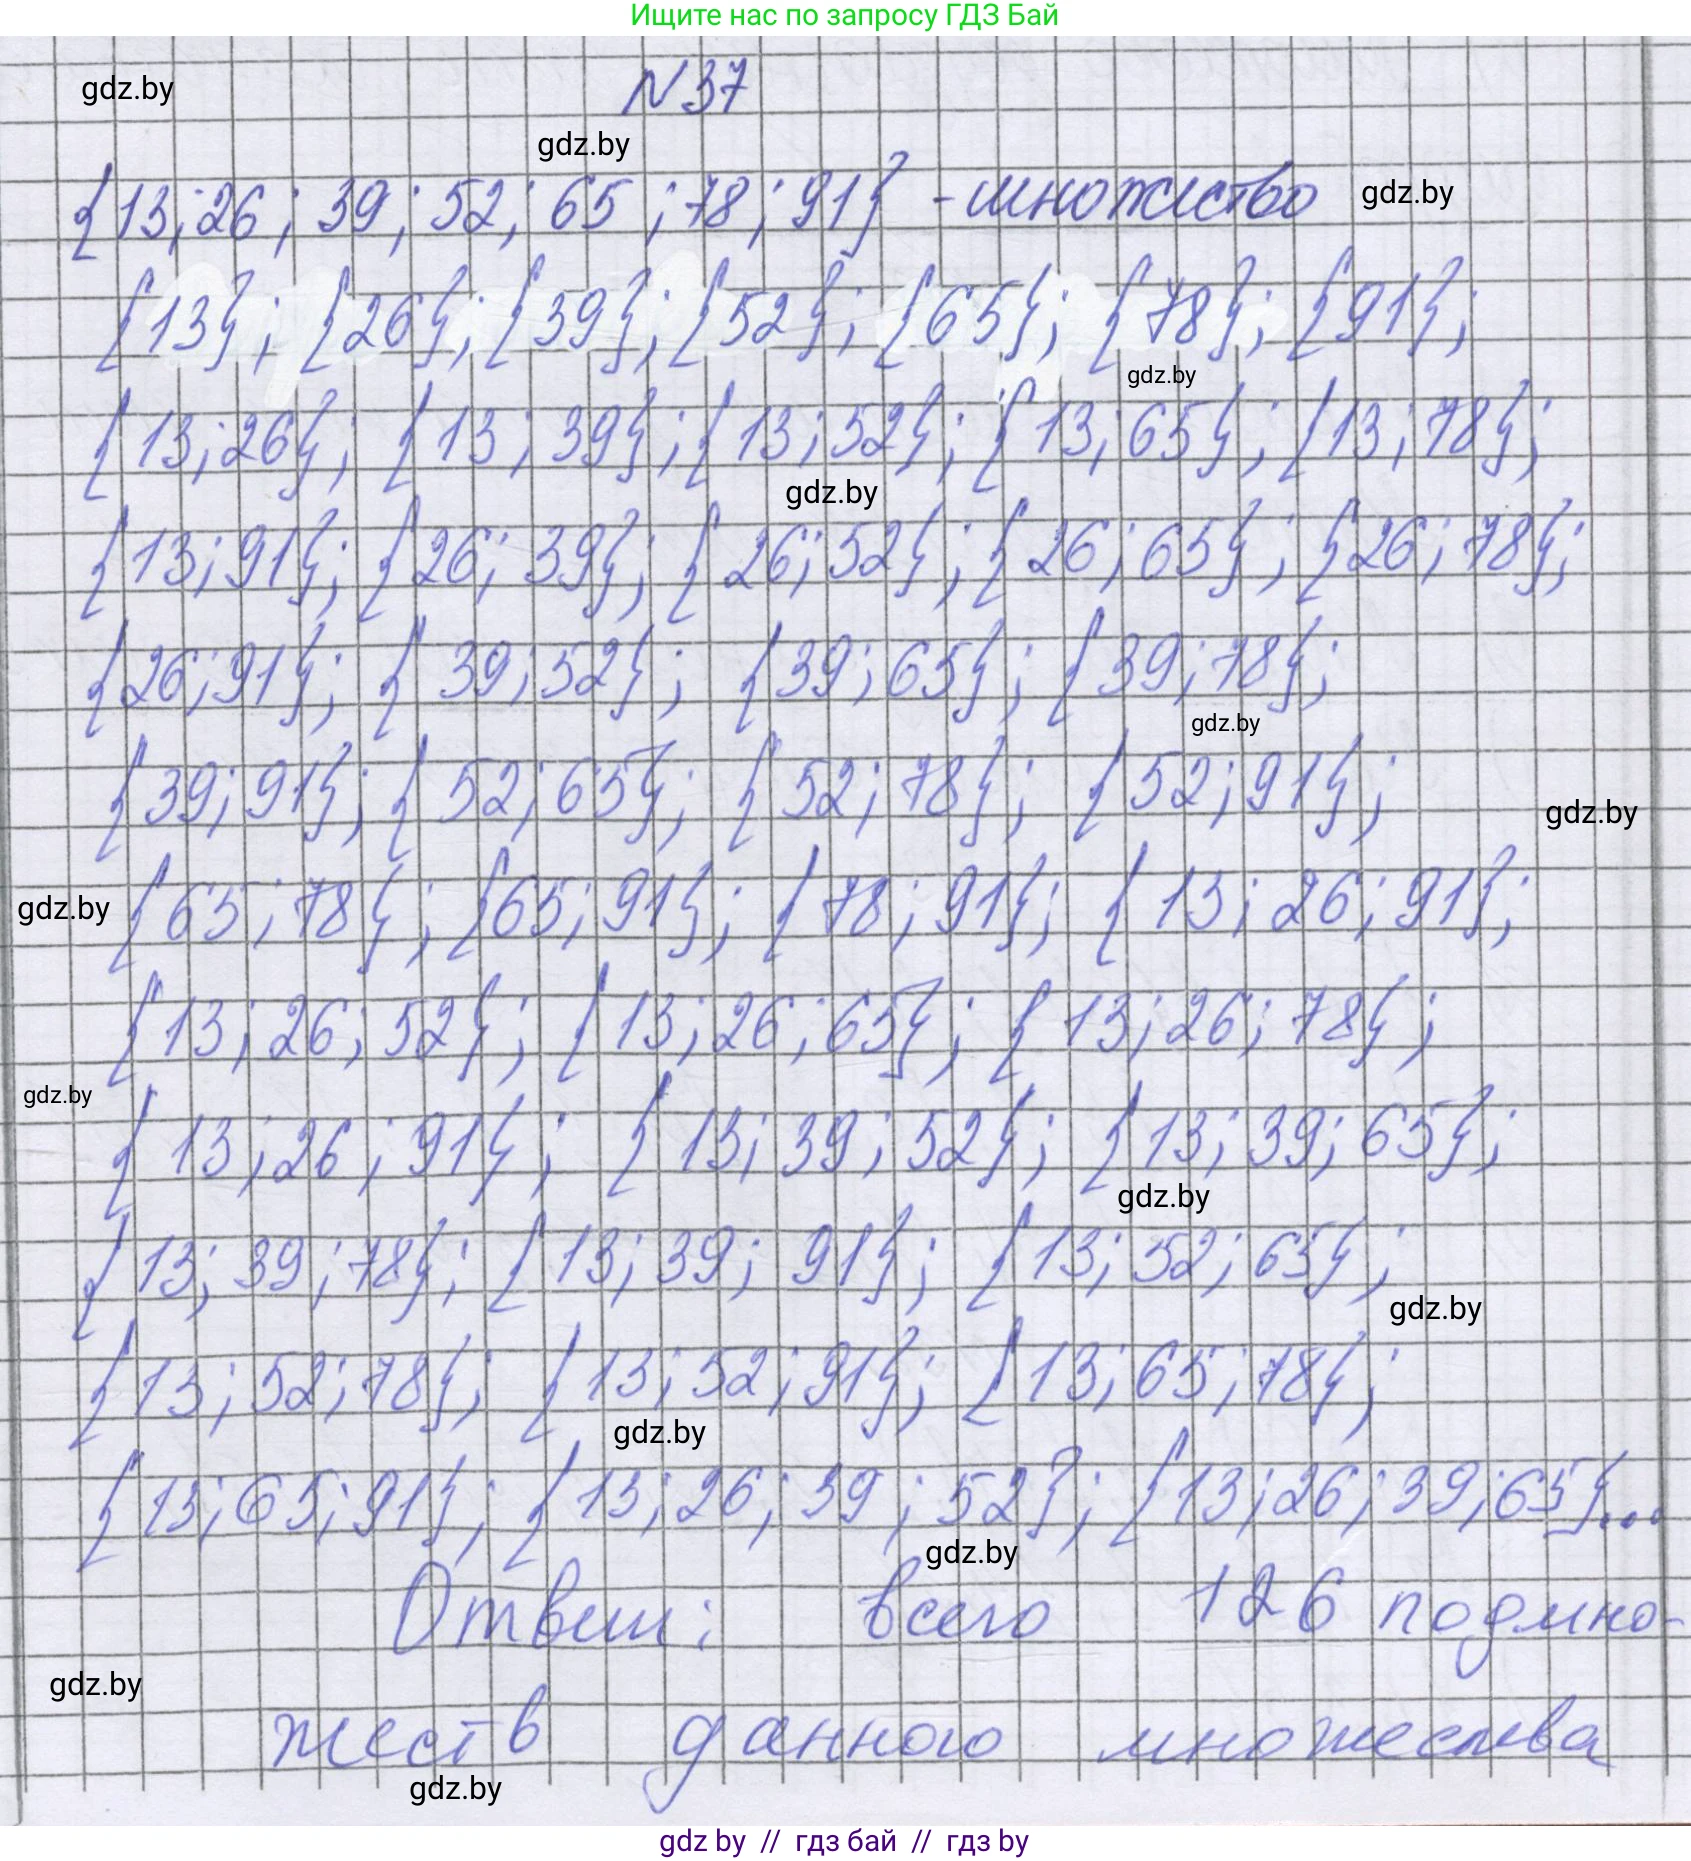 Ищите нас по запросу ГДЗ Бай
gdz.by
N 37
gdz.by
{13; 26; 39; 52; 65; 78; 91} - множество
gdz.by
{13}; {26}; {39}; {52}; {65}; {78}; {91};
gdz.by
{13; 26}; {13; 39}; {13; 52}; {13; 65}; {13; 78};
gdz.by
{13; 91}; {26; 39}; {26; 52}; {26; 65}; {26; 78};
{26; 91}; {39; 52}; {39; 65}; {39; 78};
gdz.by
{39; 91}; {52; 65}; {52; 78}; {52; 91};
gdz.by
gdz.by
{65; 78}; {65; 91}; {78; 91}; {13; 26; 91};
{13; 26; 52}; {13; 26; 65}; {13; 26; 78};
gdz.by
{13; 26; 91}; {13; 39; 52}; {13; 39; 65};
gdz.by
{13; 39; 78}; {13; 39; 91}; {13; 52; 65};
gdz.by
{13; 52; 78}; {13; 52; 91}; {13; 65; 78};
gdz.by
{13; 65; 91}; {13; 26; 39; 52}; {13; 26; 39; 65}...
gdz.by
Ответ: всего 126 подмно-
gdz.by
жеств данного множества
gdz.by
gdz by // гдз бай // гдз by